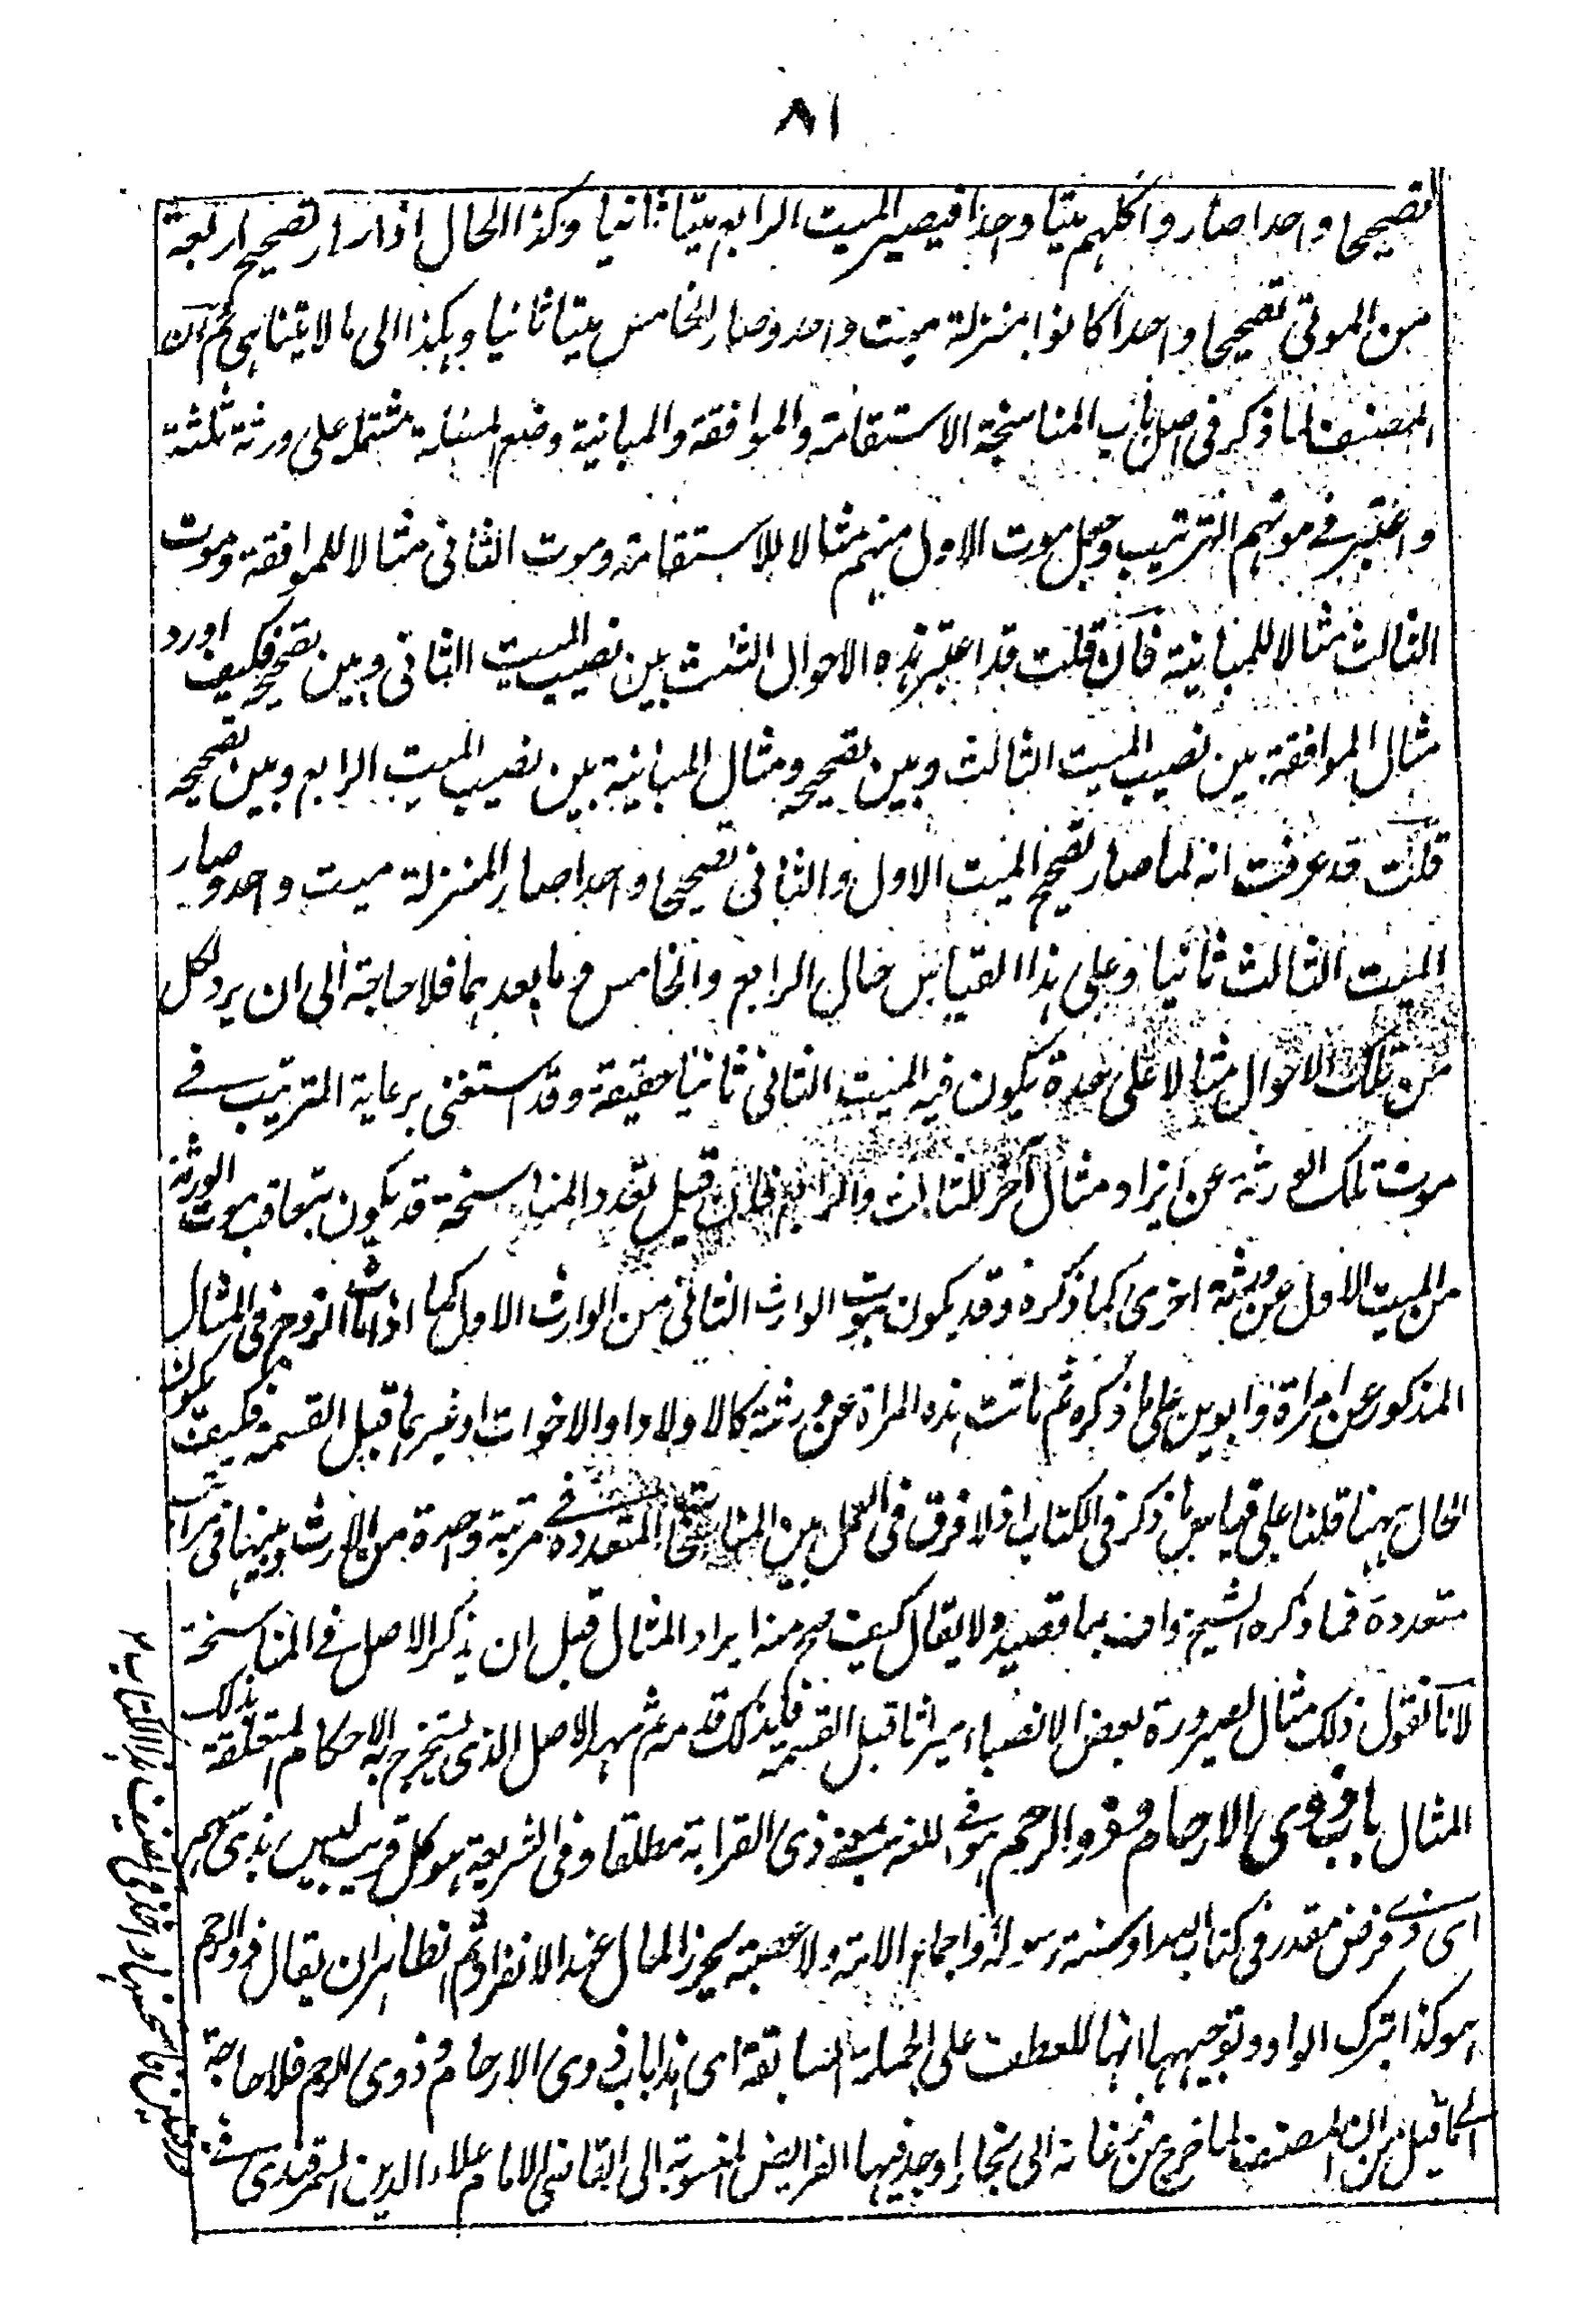 ٨١
تصحيحا واحدا صاروا كلهم ميتا واحدا فيصير الميت الرابع ميتا ثانيا وكذا الحال اذا صار تصحيح اربعة
من الموتى تصحيحا واحدا كانوا بمنزلة ميت واحد وصار الخامس ميتا ثانيا وهكذا الى ما لا يتناهى ثم ان
المصنف لما ذكر فى اصل باب المناسخة الاستقامة والموافقة والمباينة وضع لمسئلة مشتملة على ورثة ثلثة
واعتبر فے موتهم الترتيب وجعل موت الاول منهم مثالا للاستقامة وموت الثانى مثالا للموافقة وموت
الثالث مثالا للمباينة فان قلت قد اعتبر هذه الاحوال الثلث بين نصيب الميت الثانى وبين تصحيحه فكيف اورد
مثال الموافقة بين نصيب الميت الثالث وبين تصحيحه ومثال المباينة بين نصيب الميت الرابع وبين تصحيحه
قلت قد عرفت انه لما صار تصحيح الميت الاول والثانى تصحيحا واحدا صارا بمنزلة ميت واحد وصار
الميت الثالث ثانيا وعلى هذا القياس حال الرابع والخامس وما بعدهما فلا حاجة الى ان يرد لكل
من تلك الاحوال مثالا على حدة يكون فيه الميت الثانى ثانيا حقيقة وقد استغنى برعاية الترتيب فے
موت تلك الورثة عن ايراد مثال آخر للثالث والرابع فان قيل تعدد المناسخة قد يكون بتعاقب موت الورثة
من الميت الاول عن ورثة اخرى كما ذكره وقد يكون بموت الوارث الثانى من الوارث الاول كما اذا مات الزوج فى المثال
المذكور عن امراة وابوين على ما ذكره ثم ماتت هذه المراة عن ورثة كالاولاد او الاخوات او غيرهما قبل القسمة فكيف يكون
الحال ههنا قلنا على قياس ما ذكر فى الكتاب اذ لا فرق فى العمل بين المناسخات المتعددة فے مرتبة واحدة من الارث وبينها فى مراتب
متعددة فما ذكره الشيخ واف بما قصده ولا يقال كيف صح منه ايراد المثال قبل ان يذكر الاصل فے المناسخة
لانا نقول ذلك مثال لصيرورة بعض الانصباء ميراثا قبل القسمة فلذلك قدمه ثم مهد الاصل الذى يستخرج به الاحكام المتعلقة بذلك
المثال باب ذوى الارحام وذو الرحم هو فے اللغة بمعنے ذى القرابة مطلقا وفى الشريعة هو كل قريب ليس بذى سهم
اى ذے فرض مقدر فى كتاب الله او سنة رسوله او اجماع الامة ولا عصبة يحرز المال عند الانفراد ثم الظاهر ان يقال ذو الرحم
هو كذا بترك الواو وتوجيهها انها للعطف على الجملة السابقة اى هذا باب ذوى الارحام وذوى الرحم فلا حاجة
الے ما قيل من ان المصنف لما خرج من فرغانة الى بخارا وجد فيها الفرايض المنسوبة الى القاضى الامام علاء الدين السمرقندى فے